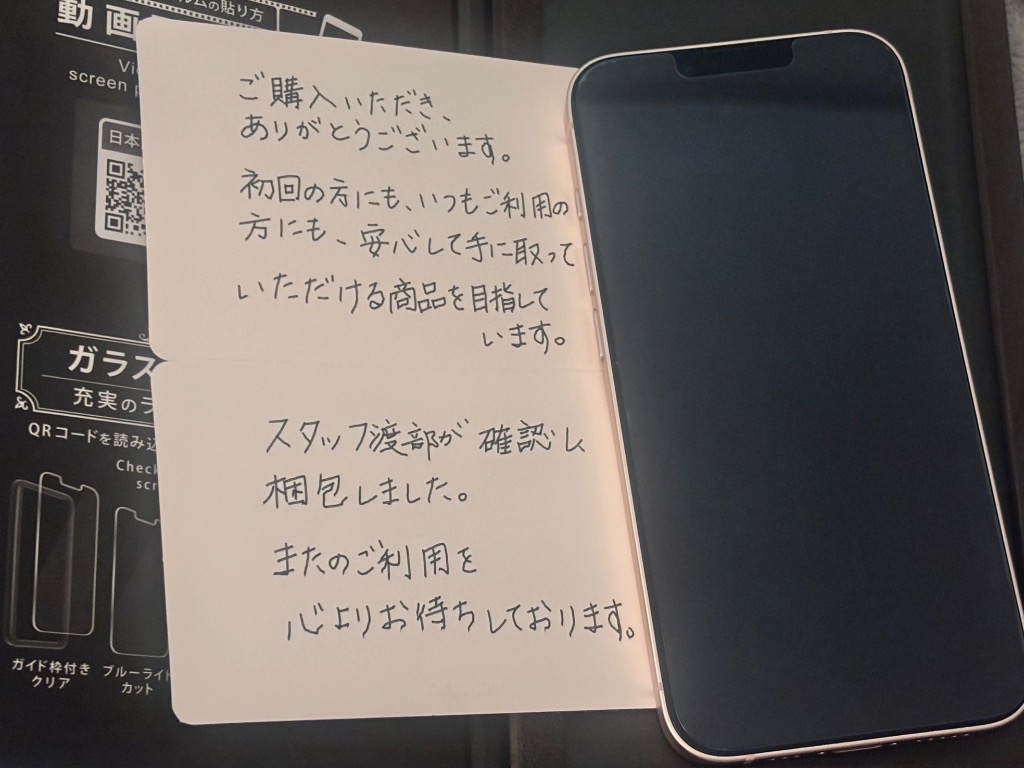 ルムの貼り方
動画
screen
日本
ご購入いただき、
ありがとうございます。
初回の方にも、いつもご利用の
方にも、安心して手に取って
いただける商品を目指して
います。
ガラス
充実の
QRコードを読み込
Check
スタッフ渡部が確認し
梱包しました。
またのご利用を
心よりお待ちしております。
ガイド枠付き
クリア
ブルーライト
カット